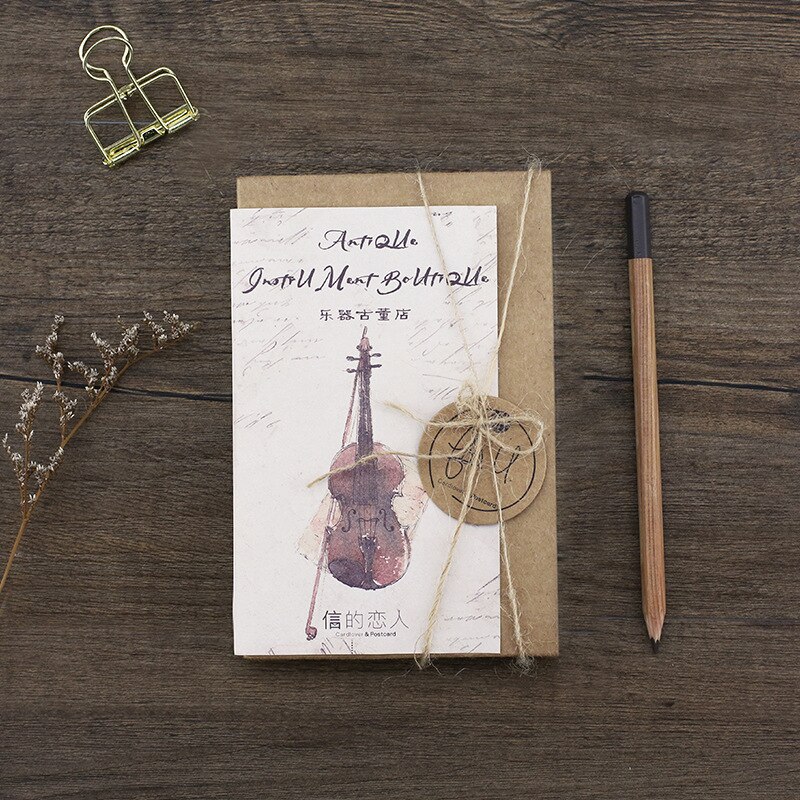 AntiQUe
InstrUMent BoUtiQUe
乐器古董店
信的恋人
Cardlover & Postcard
Cardlover & Postcard